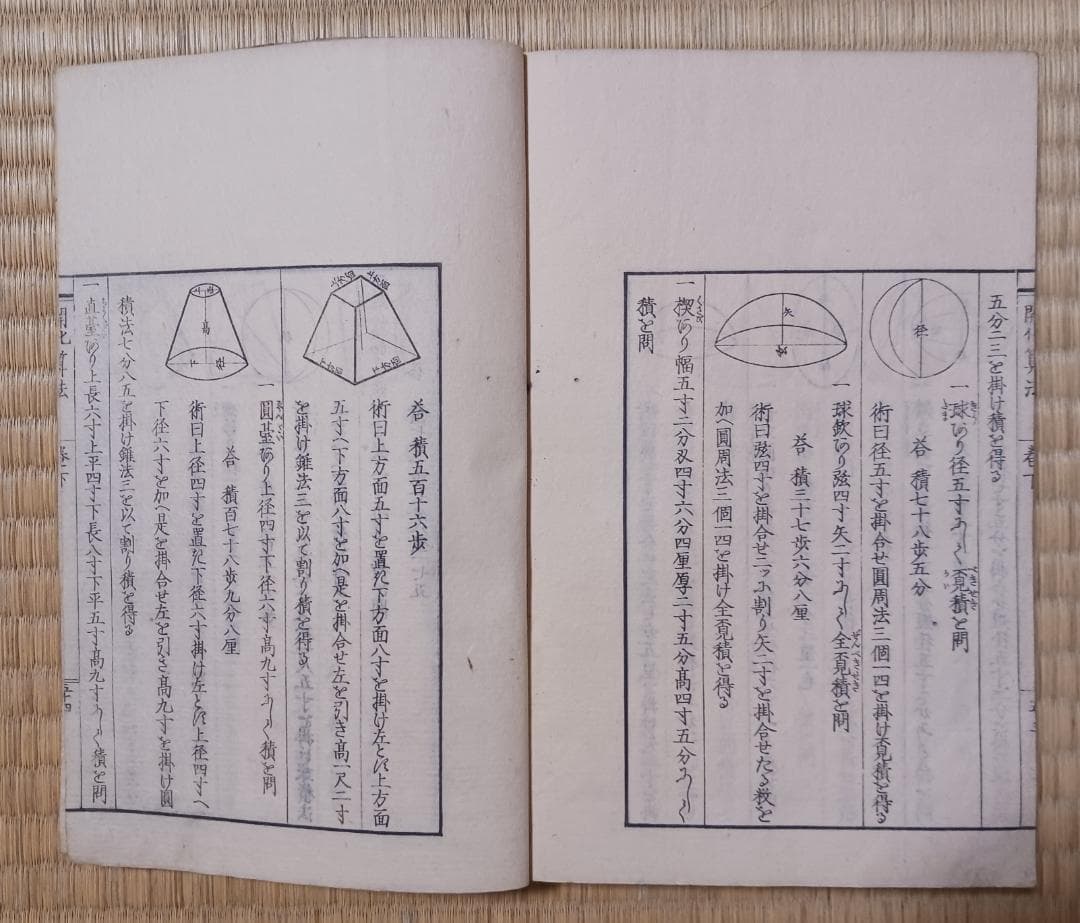 開化算法
巻下
五分二三を掛け積を得る
一 球あり径五寸あして覔積を問
答 積七十八歩五分
術曰径五寸を掛合せ圓周法三個一四を掛け覔積を得る
径
一 球欠あり弦四寸矢二寸あして全覔積を問
答 積三十七歩六分八厘
術曰弦四寸を掛合せ二ッニ割り矢二寸を掛合せたる数を
加へ圓周法三個一四を掛け全覔積を得る
矢
弦
一 楔あり幅五寸二分双四寸六分四厘厚二寸五分高四寸五分あして
積を問
答 積五百十六歩
術曰上方面五寸を置き下方面八寸を掛け左とす上方面
五寸へ下方面八寸を加へ是を掛合せ左を引き高一尺二寸
を掛け錐法三を以て割り積を得る
上方面
上方面
下方面
下方面
一 圓臺あり上径四寸下径六寸高九寸あして積を問
答 積百七十八歩九分八厘
術曰上径四寸を置き下径六寸掛け左とす上径四寸へ
下径六寸を加へ是を掛合せ左を引き高九寸を掛け圓
積法七分八五を掛け錐法三を以て割り積を得る
上径
高
下径
一 直臺あり上長六寸上平四寸下長八寸下平五寸高九寸あして積を問
開化算法
巻下
五十四